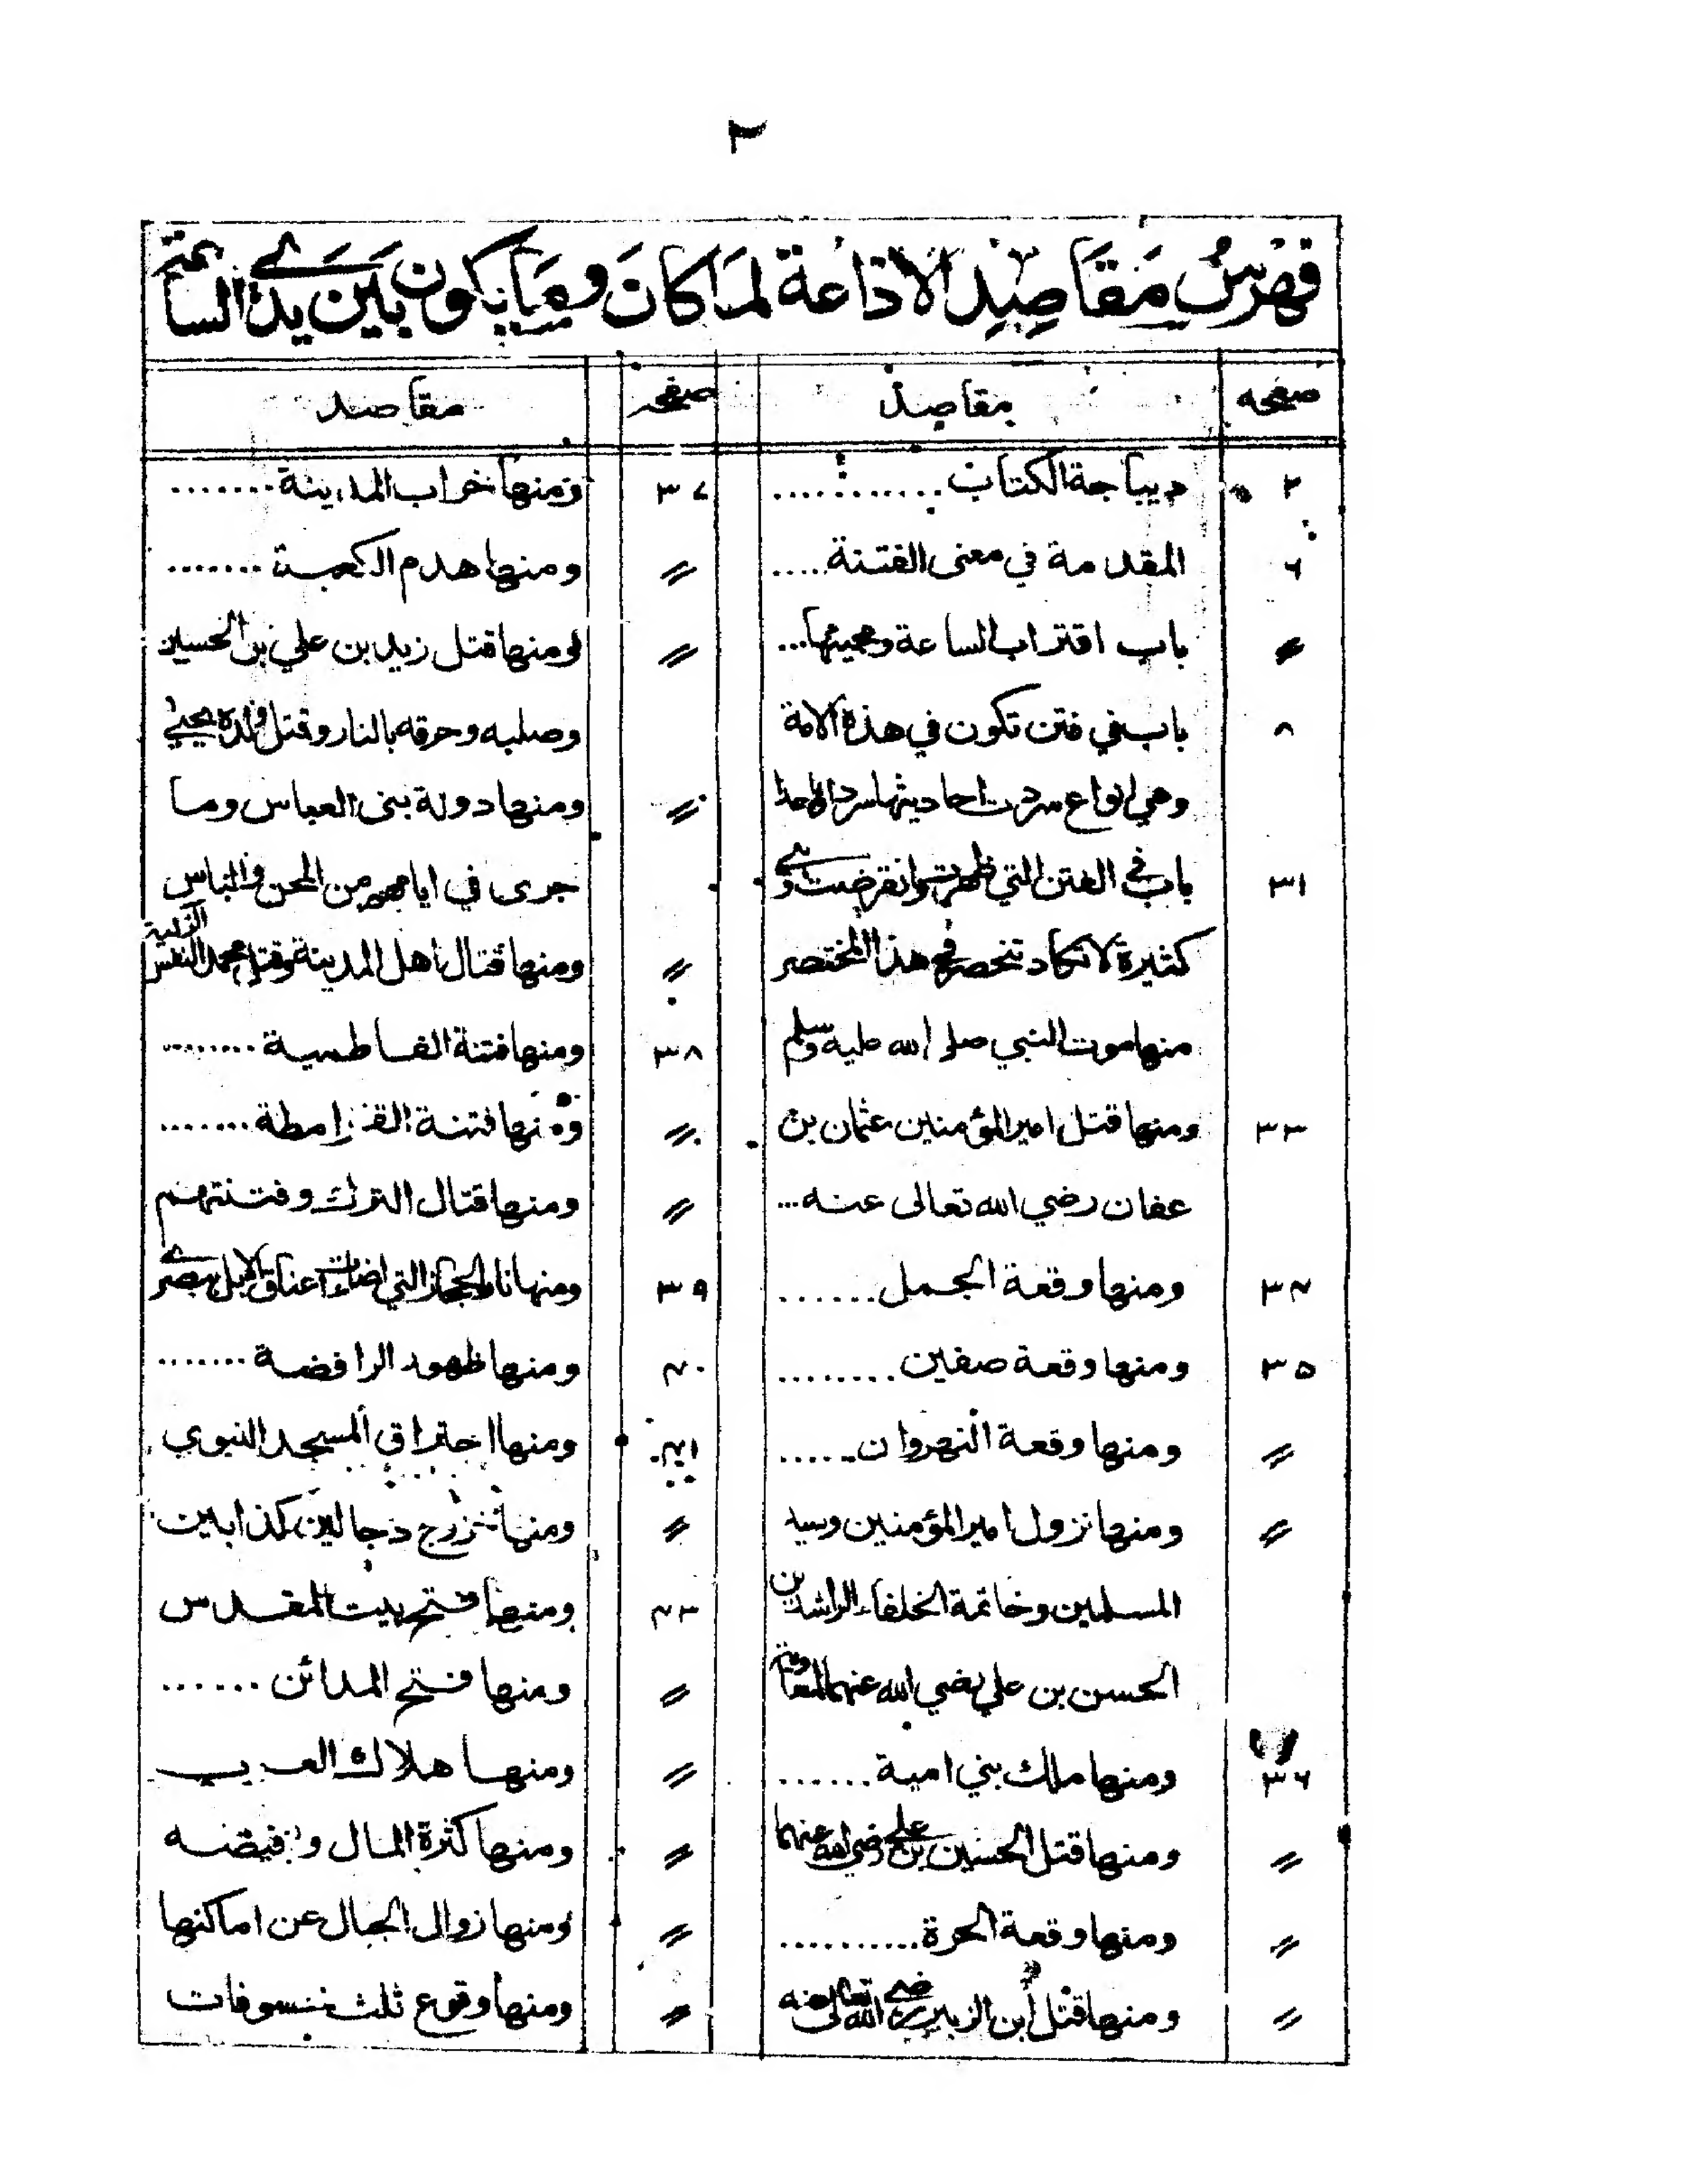 ٢
فهرس مقاصد الاذاعة لما كان وما يكون بين يدي الساعة
صفحه مقاصد
٢ ديباجة الكتاب............
٦ المقدمة في معنى الفتنة.....
〃 باب اقتراب الساعة ومجيئها...
٨ باب في فتن تكون في هذه الامة
وهي انواع سردت احاديثها سردا واحدا
٣١ باب في الفتن التي ظهرت وانقرضت وهي
كثيرة لا تكاد تنحصر في هذا المختصر
منها موت النبي صلى الله عليه وسلم
٣٣ ومنها قتل امير المؤمنين عثمان بن
عفان رضي الله تعالى عنه...
٣٤ ومنها وقعة الجمل.......
٣٥ ومنها وقعة صفين.........
〃 ومنها وقعة النهروان......
〃 ومنها نزول امير المؤمنين وسيد
المسلمين وخاتمة الخلفاء الراشدين
الحسن بن علي رضي الله عنهما لمعاوية
٣٦ ومنها ملك بني امية.......
〃 ومنها قتل الحسين بن علي رضي الله عنهما
〃 ومنها وقعة الحرة...........
〃 ومنها قتل ابن الزبير رضي الله تعالى عنه
صفحه مقاصد
٣٧ ومنها خراب المدينة.......
〃 ومنها هدم الكعبة.......
〃 ومنها قتل زيد بن علي بن الحسين
وصلبه وحرقه بالنار وقتل ولده يحيى
〃 ومنها دولة بني العباس وما
جرى في ايامهم من المحن والباس
〃 ومنها قتال اهل المدينة وقتل محمد النفس الزكية
٣٨ ومنها فتنة الفاطمية........
〃 ومنها فتنة القرامطة.......
〃 ومنها قتال الترك وفتنتهم
٣٩ ومنها نار الحجاز التي اضاءت اعناق الابل ببصرى
٤٠ ومنها ظهور الرافضة........
٤١ ومنها احتراق المسجد النبوي
〃 ومنها خروج دجالين كذابين
٤٣ ومنها فتح بيت المقدس
〃 ومنها فتح المدائن......
〃 ومنها هلاك العرب
〃 ومنها كثرة المال وفيضه
〃 ومنها زوال الجبال عن اماكنها
〃 ومنها وقوع ثلث خسوفات